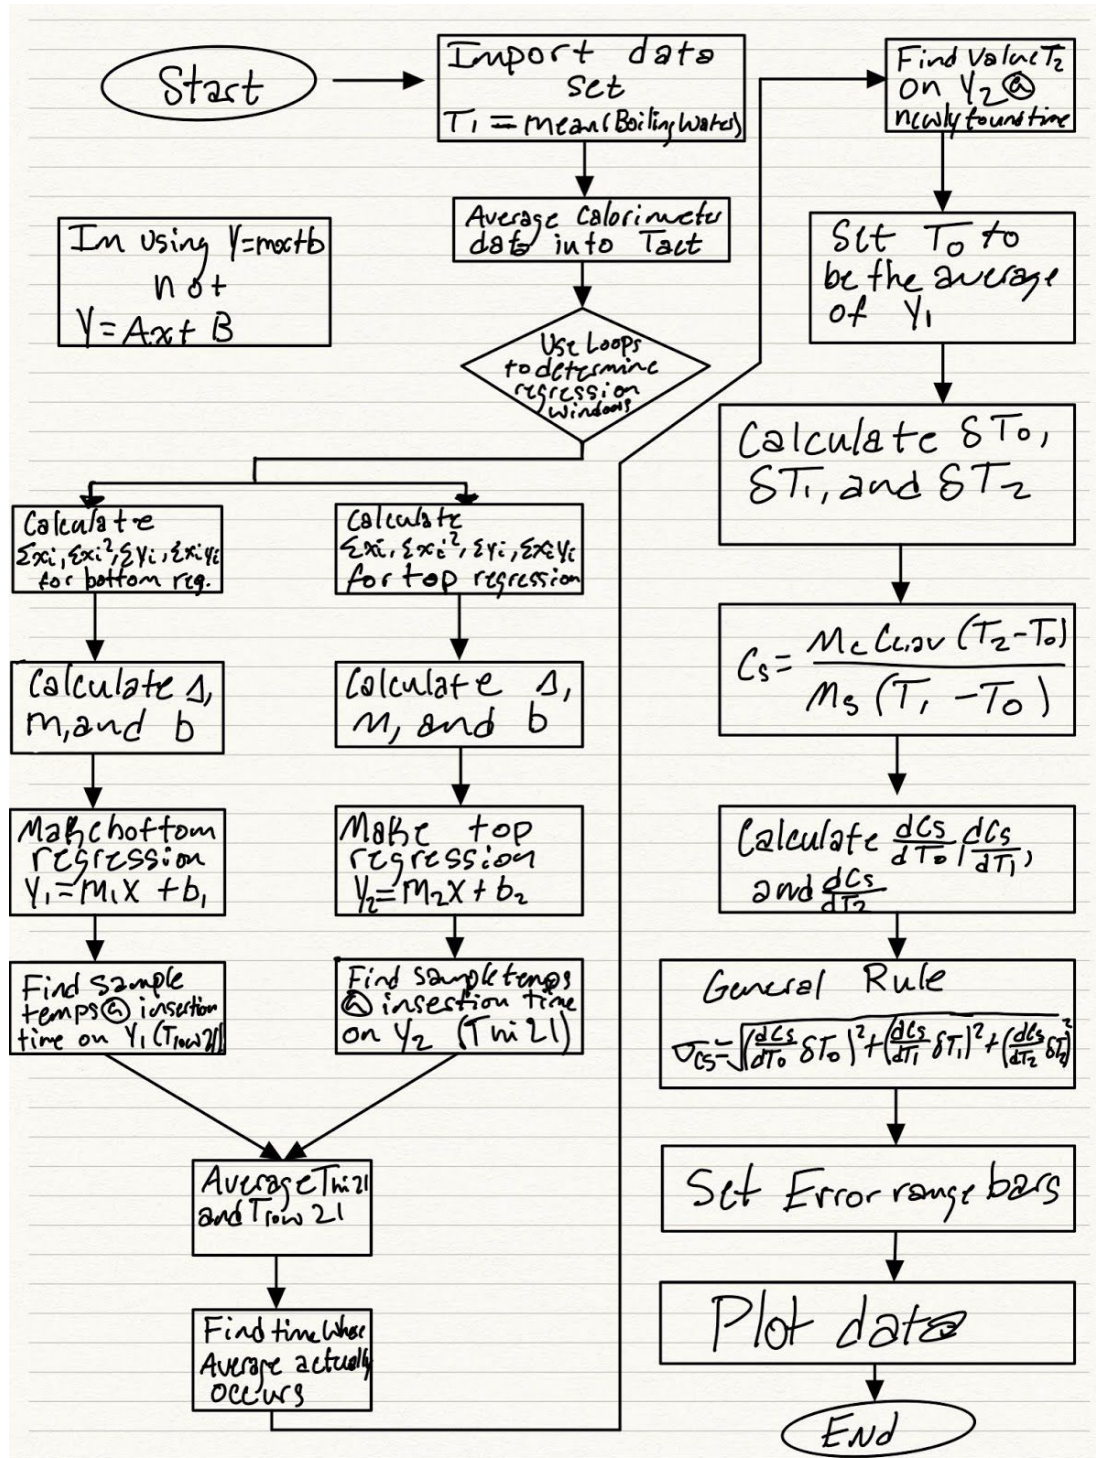 Start
Import data
set
T₁ = mean(Boiling Water)
Average Calorimeter
data into Tact
Im using Y=mx+b
not
Y=Ax+B
Use Loops
to determine
regression
windows
Calculate
Σxi, Σxi², Σyi, Σxiyi
for bottom reg.
Calculate Δ,
m, and b
Make bottom
regression
Y₁=m₁x +b₁
Find sample
temps @ insertion
time on Y₁ (Tlow21)
Calculate
Σxi, Σxi², Σyi, Σxiyi
for top regression
Calculate Δ,
m, and b
Make top
regression
Y₂=m₂x+b₂
Find sample temps
@ insertion time
on Y₂ (Thi21)
Average Thi21
and Tlow21
Find time whose
Average actually
occurs
Find value T₂
on Y₂ @
newly found time
Set T₀ to
be the average
of Y₁
Calculate δT₀,
δT₁, and δT₂
Cs = Mc Cc,av (T₂-T₀) / Ms (T₁ -T₀)
Calculate dCs/dT₀, dCs/dT₁,
and dCs/dT₂
General Rule
σCs=√((dCs/dT₀ δT₀)²+(dCs/dT₁ δT₁)²+(dCs/dT₂ δT₂)²
Set Error range bars
Plot data
End